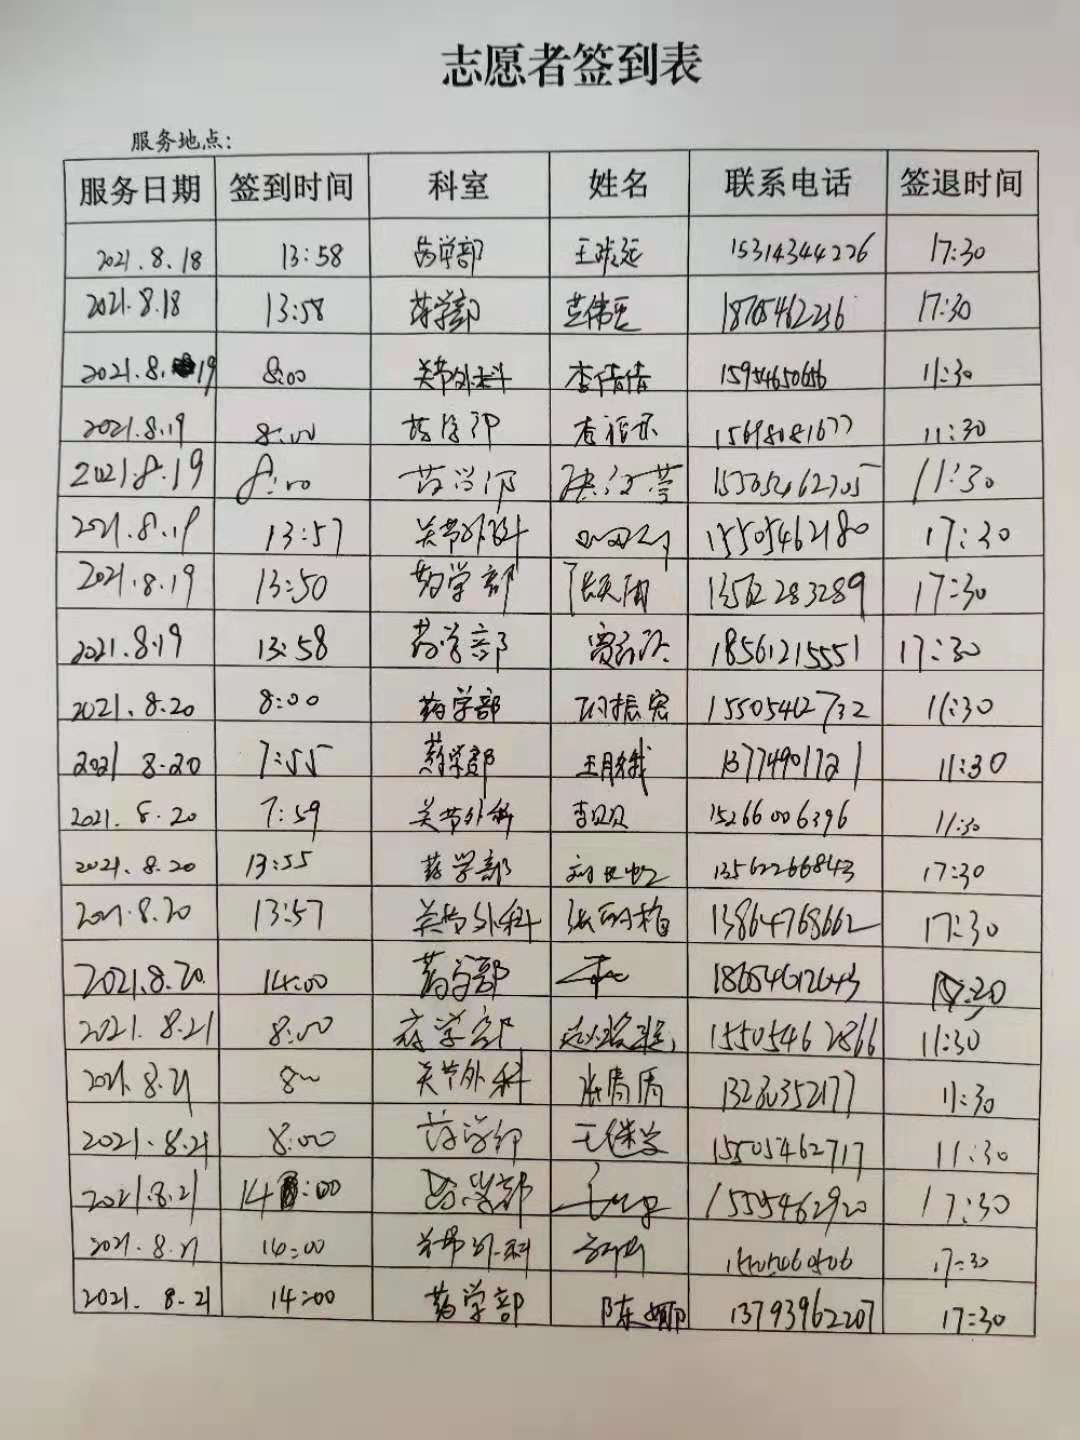 志愿者签到表
服务地点：
服务日期 签到时间 科室 姓名 联系电话 签退时间
2021.8.18 13:58 药学部 15314344226 17:30
2021.8.18 13:58 药学部 18705462236 17:30
2021.8.19 8:00 关节外科 李倩倩 15954650656 11:30
2021.8.19 8:00 药学部 15698081677 11:30
2021.8.19 8:00 药学部 11:30
2021.8.19 13:57 关节外科 15505462180 17:30
2021.8.19 13:50 药学部 13562283289 17:30
2021.8.19 13:58 药学部 18561215551 17:30
2021.8.20 8:00 药学部 孙振宏 15505462732 11:30
2021 8.20 7:55 药学部 13774901721 11:30
2021.8.20 7:59 关节外科 李贝贝 15266006396 11:30
2021.8.20 13:55 药学部 13562266843 17:30
2021.8.20 13:57 关节外科 13864768662 17:30
2021.8.20 14:00 药学部 18654612643
2021.8.21 8:00 药学部 15505462866 11:30
2021.8.21 关节外科 11:30
2021.8.21 8:00 药学部 15505462717 11:30
2021.8.21 14:00 药学部 17:30
2021.8.21 14:00 关节外科 17:30
2021.8.21 14:00 药学部 陈娜 13793962207 17:30